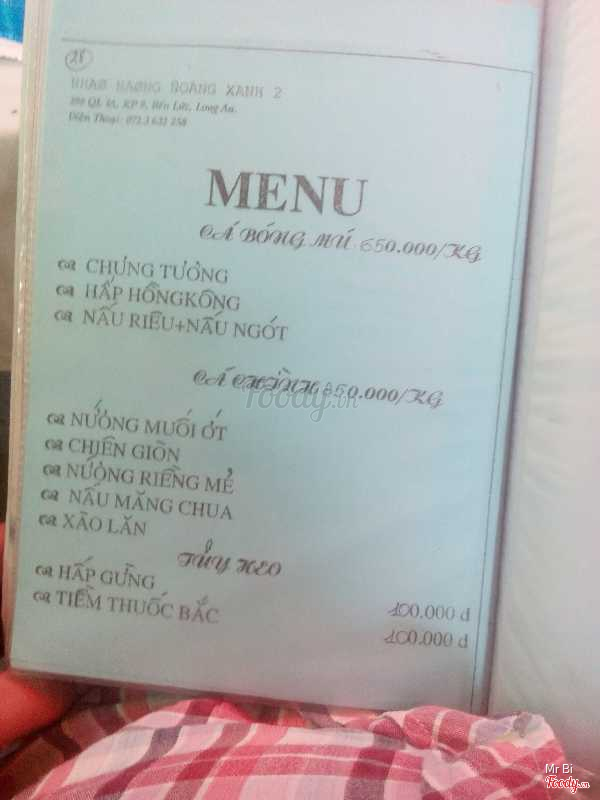 28
NHAØ HAØNG HOÀNG XANH 2
Bến Lức, Long An.
Điện Thoại: 072.3 631 258
MENU
CÁ BÓNG MÚ 650.000/KG
CHƯNG TƯƠNG
HẤP HỒNGKÔNG
NẤU RIÊU+NẤU NGÓT
CÁ CHÌNH 650.000/KG
Foody.vn
NƯỚNG MUỐI ỚT
CHIÊN GIÒN
NƯỚNG RIỀNG MẺ
NẤU MĂNG CHUA
XÀO LĂN
TỦY HEO
HẤP GỪNG 100.000 đ
TIỀM THUỐC BẮC 100.000 đ
Mr Bi
Foody.vn